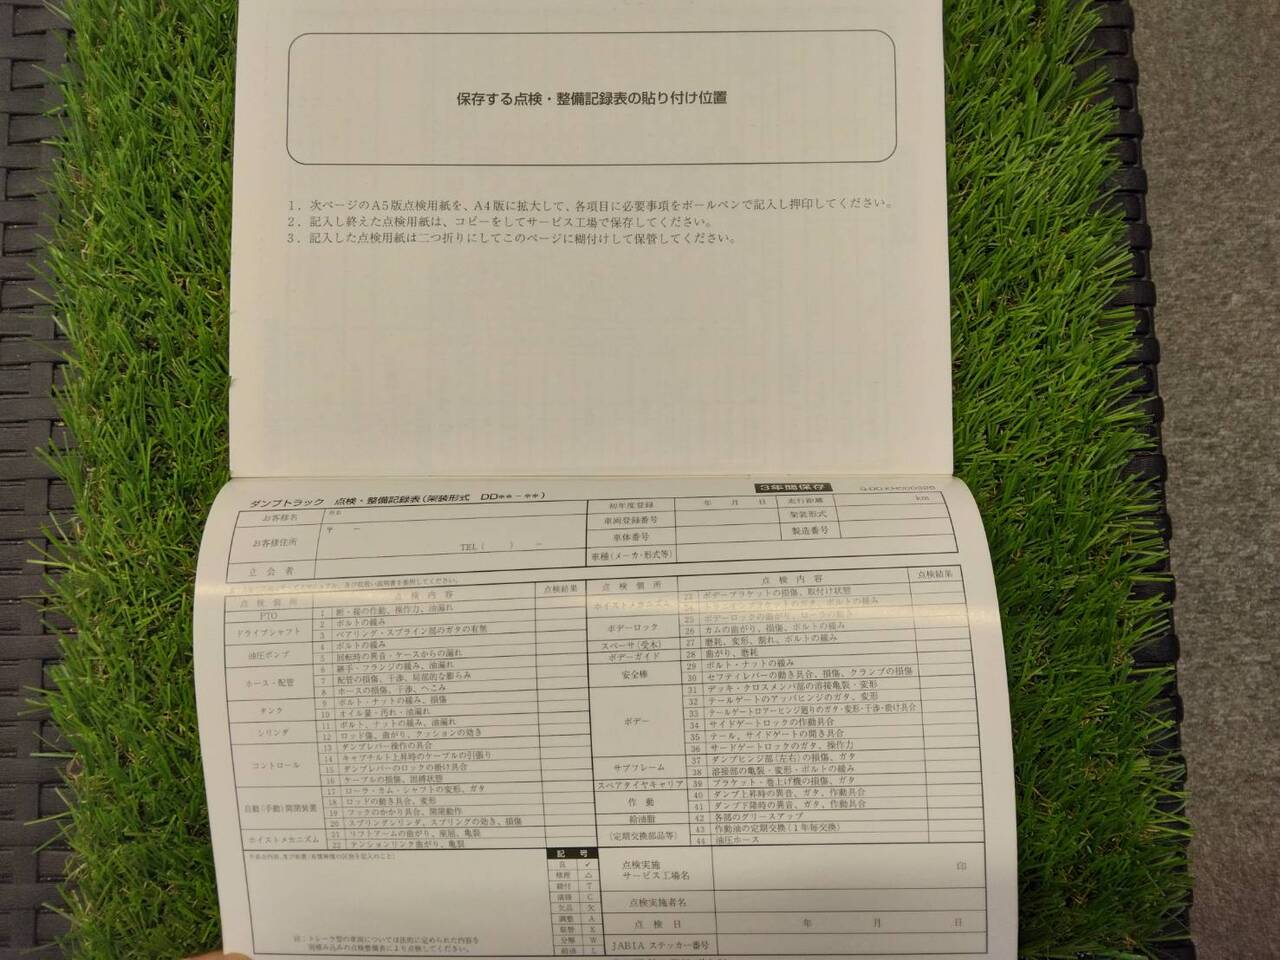 保存する点検・整備記録表の貼り付け位置
1．次ページのA5版点検用紙を、A4版に拡大して、各項目に必要事項をボールペンで記入し押印してください。
2．記入し終えた点検用紙は、コピーをしてサービス工場で保存してください。
3．記入した点検用紙は二つ折りにしてこのページに糊付けして保管してください。
3年間保存
ダンプトラック 点検・整備記録表(架装形式 DD＊＊－＊＊)
お客様名
お客様住所 〒 －
TEL( ) －
立会者
初年度登録 年 月 日 走行距離 km
車両登録番号 架装形式
車体番号 製造番号
車種(メーカ・形式等)
点検箇所 点検内容 点検結果
PTO 1 断・接の作動、操作力、油漏れ
ドライブシャフト 2 ボルトの緩み
3 ベアリング・スプライン部のガタの有無
油圧ポンプ 4 ボルトの緩み
5 回転時の異音・ケースからの漏れ
ホース・配管 6 継手・フランジの緩み、油漏れ
7 配管の損傷、干渉、局部的な膨らみ
8 ホースの損傷、干渉、へこみ
タンク 9 ボルト・ナットの緩み、損傷
10 オイル量・汚れ・油漏れ
シリンダ 11 ボルト、ナットの緩み、油漏れ
12 ロッド傷、曲がり、クッションの効き
コントロール 13 ダンプレバー操作の具合
14 キャブチルト上昇時のケーブルの引張り
15 ダンプレバーのロックの掛け具合
16 ケーブルの損傷、固縛状態
自動(手動)開閉装置 17 ローラ・カム・シャフトの変形、ガタ
18 ロッドの動き具合、変形
19 フックのかかり具合、開閉動作
20 スプリングシリンダ、スプリングの効き、損傷
ホイストメカニズム 21 リフトアームの曲がり、座屈、亀裂
22 テンションリンク曲がり、亀裂
点検箇所 点検内容 点検結果
ホイストメカニズム 23 ボデーブラケットの損傷、取付け状態
24
ボデーロック 25
26 カムの曲がり、損傷、ボルトの緩み
スペーサ(受木) 27 磨耗、変形、割れ、ボルトの緩み
ボデーガイド 28 曲がり、磨耗
安全棒 29 ボルト・ナットの緩み
30 セフティレバーの動き具合、損傷、クランプの損傷
ボデー 31 デッキ・クロスメンバ部の溶接亀裂・変形
32 テールゲートのアッパヒンジのガタ、変形
33 テールゲートロアーヒンジ廻りのガタ・変形・干渉・掛け具合
34 サイドゲートロックの作動具合
35 テール、サイドゲートの開き具合
36 サードゲートロックのガタ、操作力
サブフレーム 37 ダンプヒンジ部(左右)の損傷、ガタ
38 溶接部の亀裂・変形・ボルトの緩み
スペアタイヤキャリア 39 ブラケット・巻上げ機の損傷、ガタ
作動 40 ダンプ上昇時の異音、ガタ、作動具合
41 ダンプ下降時の異音、ガタ、作動具合
給油脂 42 各部のグリースアップ
(定期交換部品等) 43 作動油の定期交換(1年毎交換)
44 油圧ホース
記号
良 ✓
修理 △
締付 T
清掃 C
欠品 欠
調整 A
取替 X
分解 W
給油 L
点検実施
サービス工場名 印
点検実施者名
点検日 年 月 日
JABIA ステッカー番号
注：トレーラ型の車両については法的に定められた内容を
別積み込みの点検整備表により点検してください。